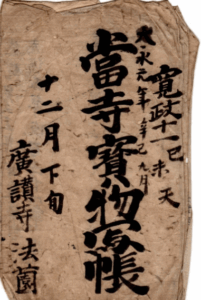 寛政十一己未天
安永元年
九月
當寺寳物写帳
十二月下旬
廣讃寺 法薗